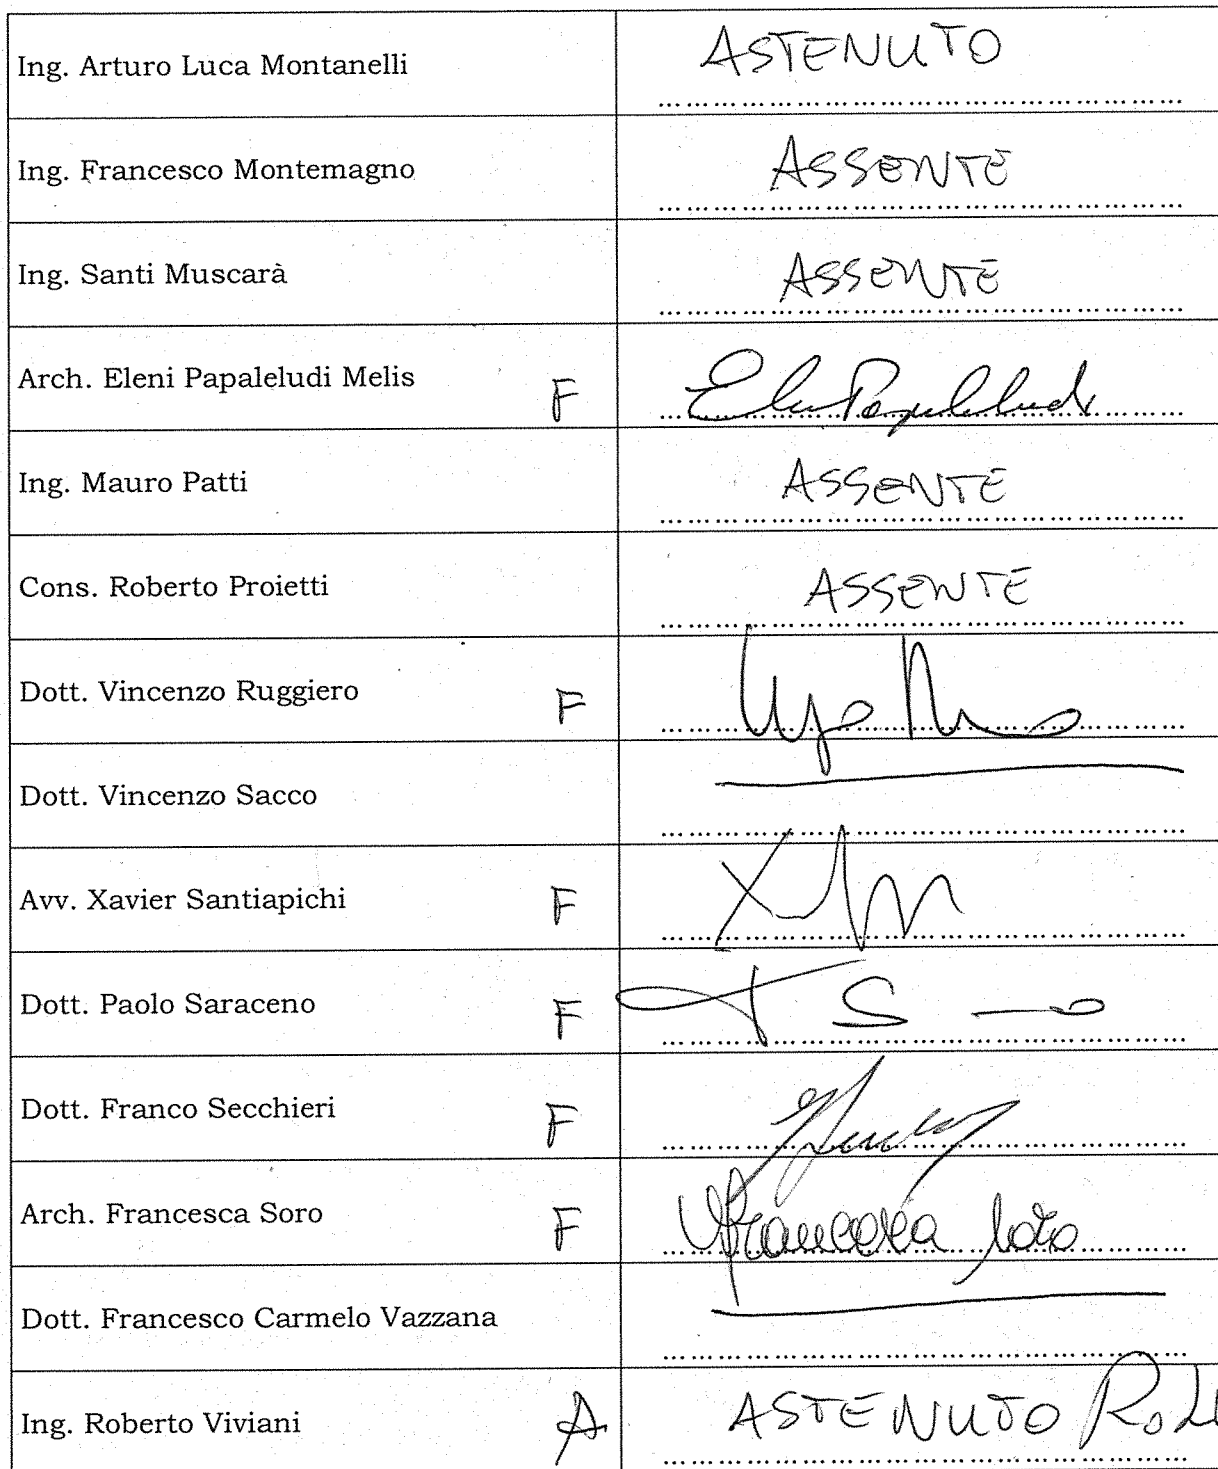 Ing. Arturo Luca Montanelli ASTENUTO
Ing. Francesco Montemagno ASSENTE
Ing. Santi Muscarà ASSENTE
Arch. Eleni Papaleludi Melis F
Ing. Mauro Patti ASSENTE
Cons. Roberto Proietti ASSENTE
Dott. Vincenzo Ruggiero F
Dott. Vincenzo Sacco
Avv. Xavier Santiapichi F
Dott. Paolo Saraceno F
Dott. Franco Secchieri F
Arch. Francesca Soro F Francesca Soro
Dott. Francesco Carmelo Vazzana
Ing. Roberto Viviani A ASTENUTO